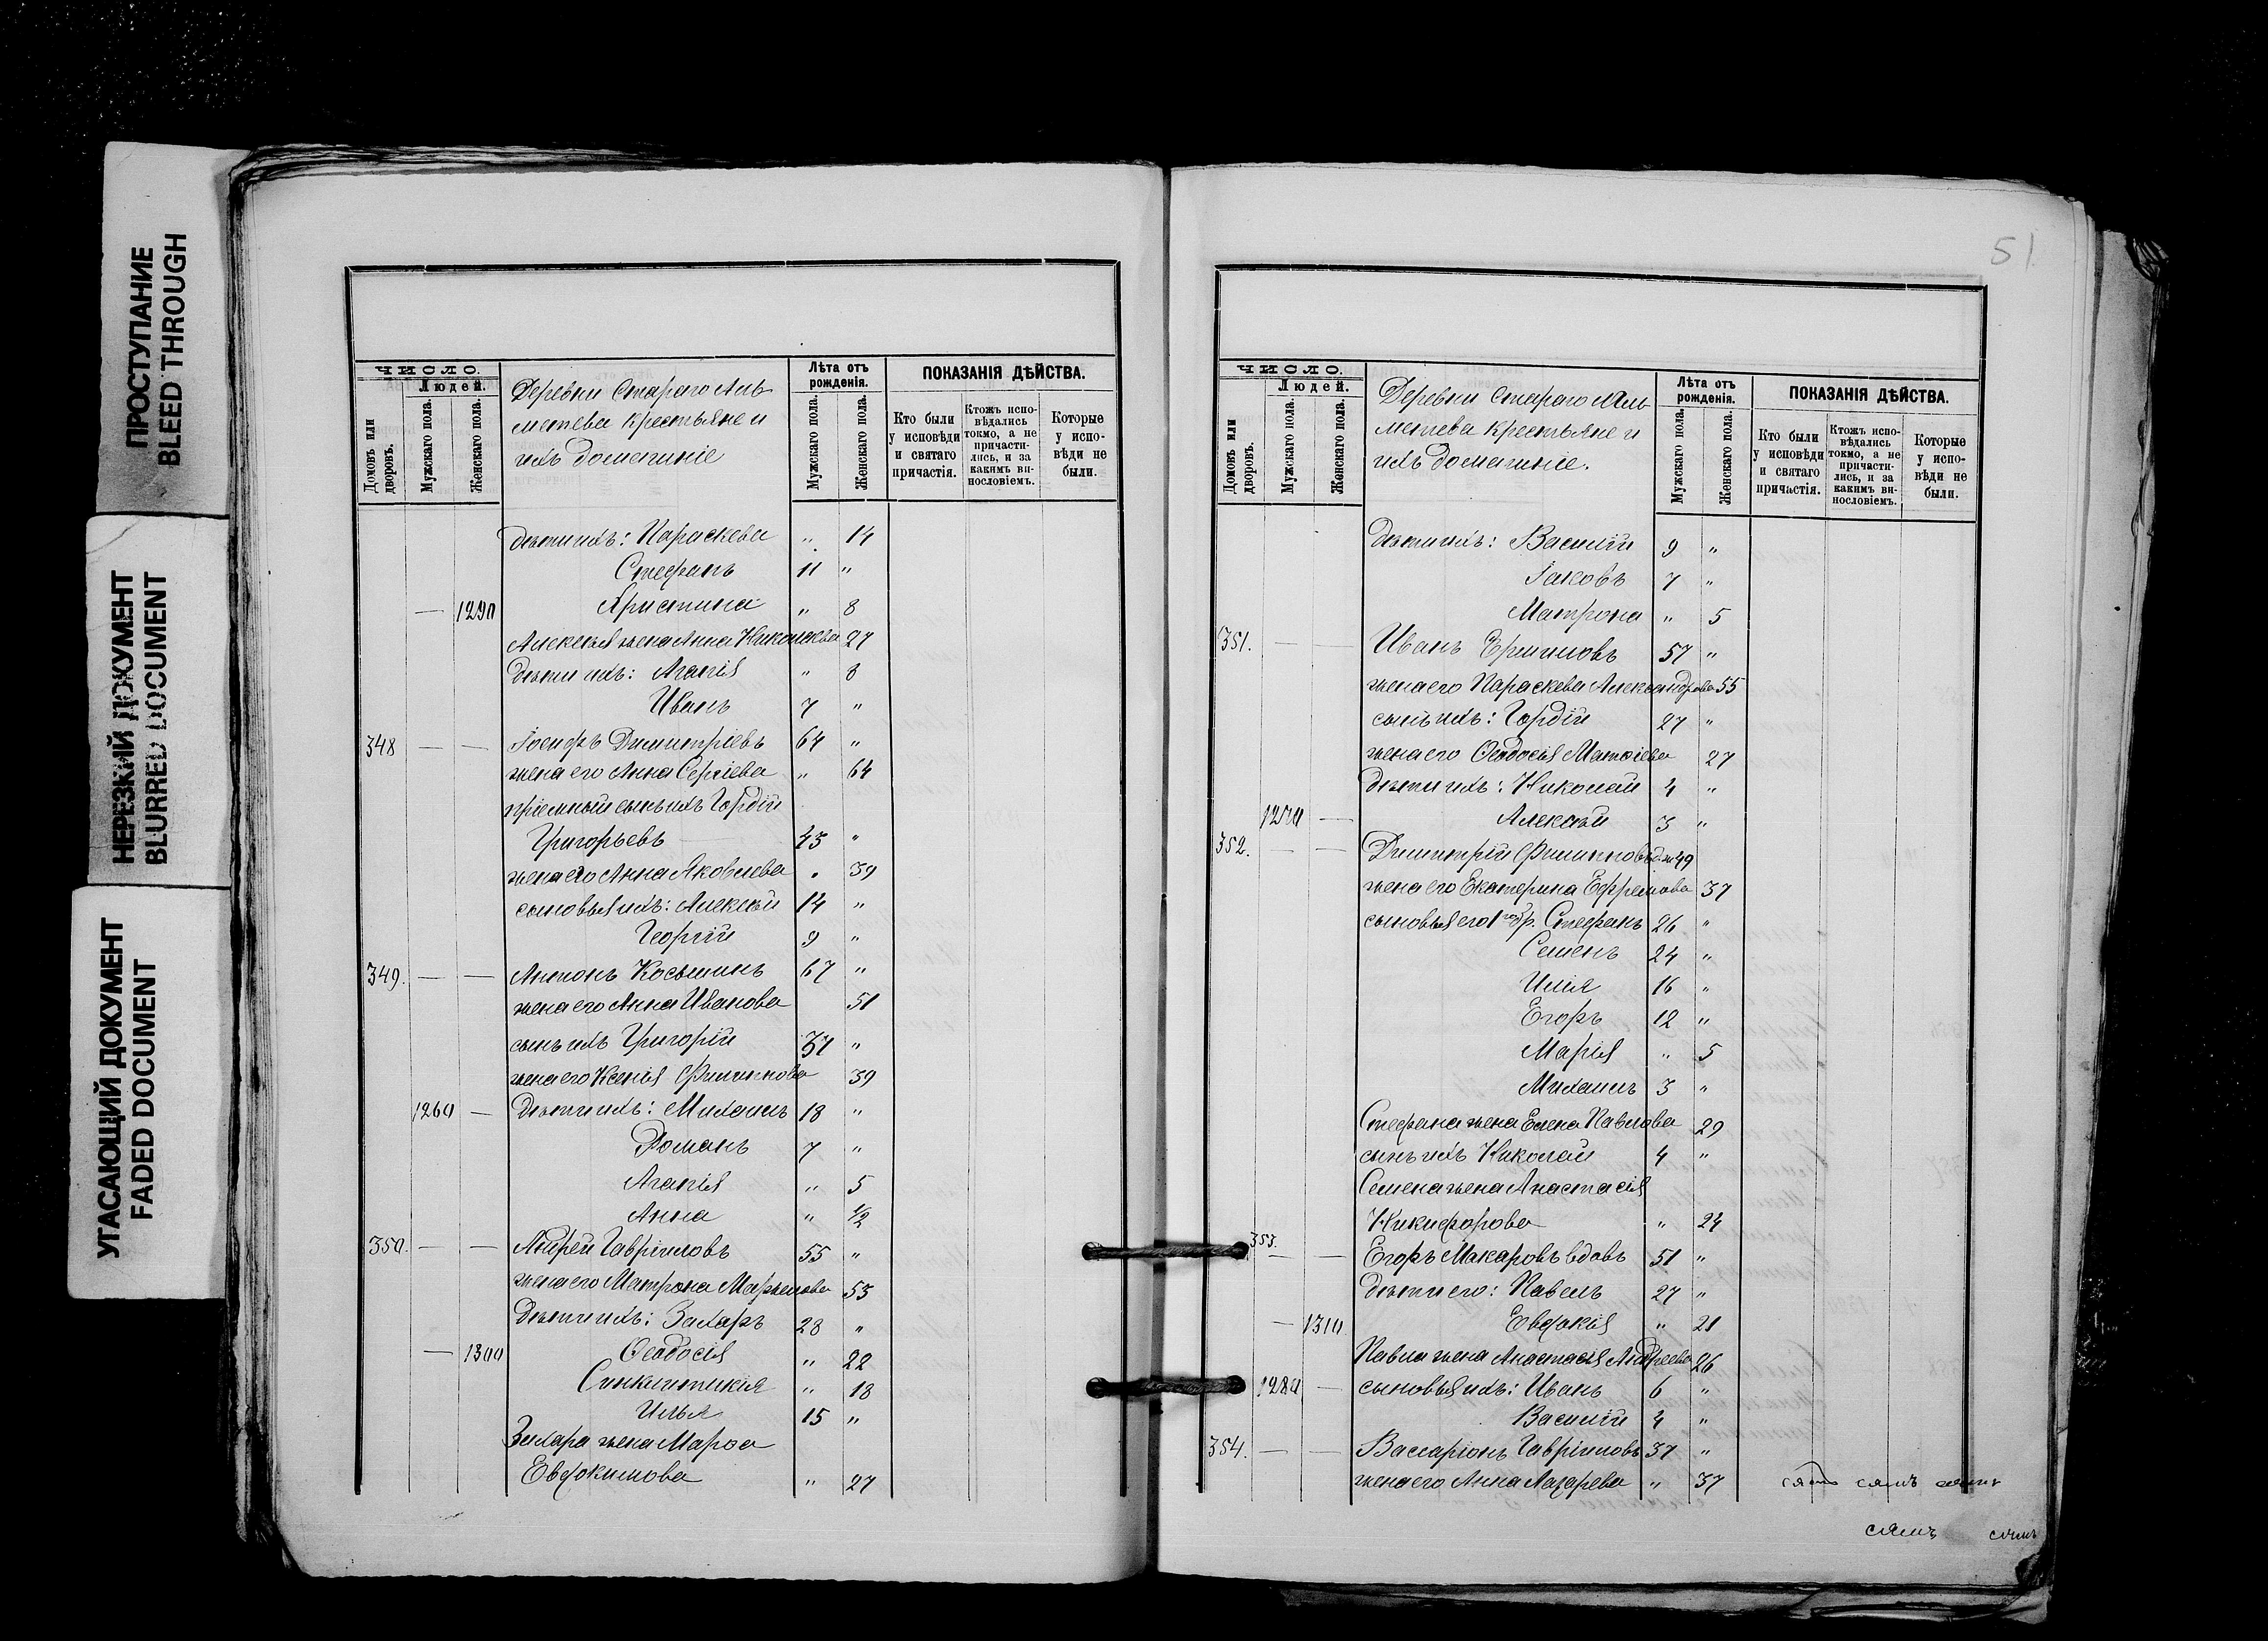 ПРОСТУПАНИЕ
BLEED THROUGH
НЕРЕЗКИЙ ДОКУМЕНТ
BLURRED DOCUMENT
УГАСАЮЩИЙ ДОКУМЕНТ
FADED DOCUMENT
ЧИСЛО.
Людей.
Домовъ или дворовъ.
Мужскаго пола.
Женскаго пола.
Деревни Стараго Аль-
метева крестьяне и
ихъ домашніе
Лѣта отъ рожденія.
Мужскаго пола.
Женскаго пола.
ПОКАЗАНІЯ ДѢЙСТВА.
Кто были у исповѣди и святаго причастія.
Ктожъ испо-вѣдались токмо, а не причасти-лись, и за какимъ ви-нословіемъ.
Которые у испо-вѣди не были.
дѣти ихъ: Параскева " 14
Стефанъ 11 "
— 1290 Христина " 8
Алексѣя жена Анна Николаева 27
дѣти ихъ: Агапія " 8
Иванъ 7 "
348 — — Іосифъ Димитріевъ 64 "
жена его Анна Сергіева " 64
пріемный сынъ ихъ Гордій
Григорьевъ 43 "
жена его Анна Яковлева " 39
сыновья ихъ: Алексѣй 14 "
Георгій 9 "
349. — — Антонъ Косьминъ 67 "
жена его Анна Иванова 51
сынъ ихъ Григорій 37 "
жена его Ксенія Филиппова 39
1260 — Дѣти ихъ: Михаилъ 18 "
Романъ 7 "
Агапія " 5
Анна " 1/2
350. — — Андрей Гавріиловъ 55 "
жена его Матрона Маркелова 53
Дѣти ихъ: Захаръ 28 "
— 1300 Ѳеодосія " 22
Синклитикія " 18
Илья 15 "
Захара жена Марѳа
Евдокимова " 27
51
ЧИСЛО.
Людей.
Домовъ или дворовъ.
Мужскаго пола.
Женскаго пола.
Деревни Стараго Аль-
метева крестьяне и
ихъ домашніе.
Лѣта отъ рожденія.
Мужскаго пола.
Женскаго пола.
ПОКАЗАНІЯ ДѢЙСТВА.
Кто были у исповѣди и святаго причастія.
Ктожъ испо-вѣдались токмо, а не причасти-лись, и за какимъ ви-нословіемъ.
Которые у испо-вѣди не были.
Дѣти ихъ: Василій 9 "
Іаковъ 7 "
Матрона " 5
351. — — Иванъ Ермиловъ 57 "
жена его Параскева Александрова 55
сынъ ихъ: Гордій 27 "
жена его Ѳеодосія Матѳіева 27
дѣти ихъ: Николай 4 "
1270 — Алексѣй 3 "
352. — — Димитрій Филипповъ 49
жена его Екатерина Ефремова 37
сыновья его 1го бр. Стефанъ 26 "
Семенъ 24 "
Илія 16 "
Егоръ 12 "
Марія " 5
Михаилъ 3 "
Стефана жена Елена Павлова 29
сынъ ихъ Николай 4 "
Семена жена Анастасія
Никифорова " 24
353. — — Егоръ Макаровъ вдовъ 51 "
дѣти его: Павелъ 27 "
— 1310 Евдокія " 21
Павла жена Анастасія Андреева 26
1280 — сыновья ихъ: Иванъ 6 "
Василій 4 "
354. — — Вассаріонъ Гавріиловъ 37 "
жена его Анна Лазарева " 37